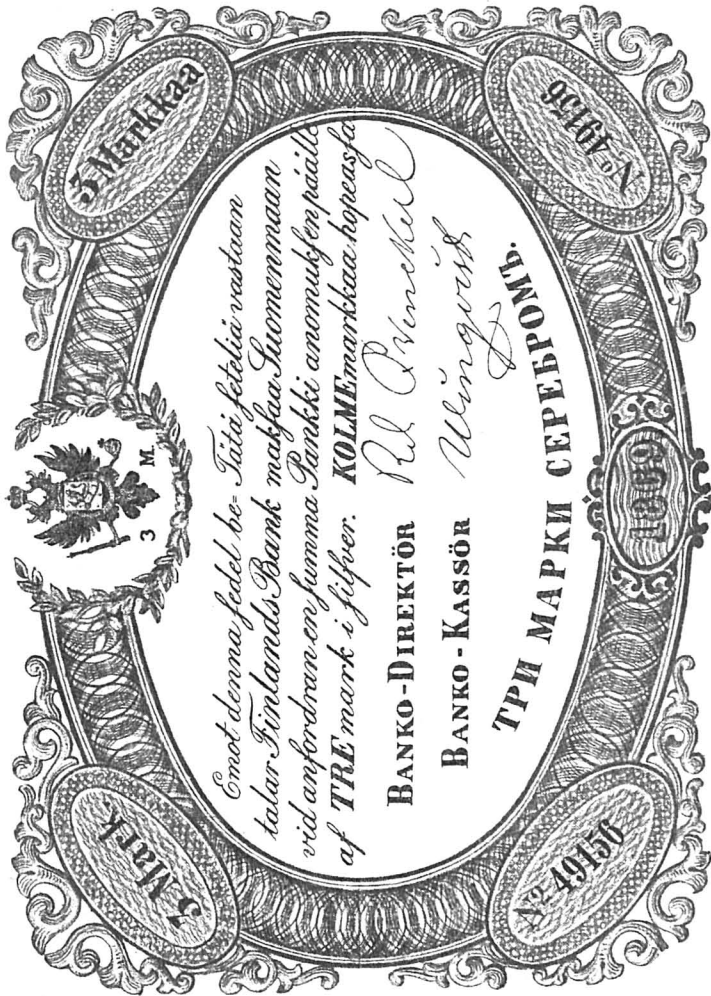 3 Mark
3 M.
3 Markkaa
Emot denna sedel be=
talar Finlands Bank
vid anfordran en summa
af TRE mark i silfver.
Tätä seteliä vastaan
maksaa Suomenmaan
Pankki anomuksen päälle
KOLME markkaa hopeassa
BANKO-DIREKTÖR
BANKO-KASSÖR
Winqvist
ТРИ МАРКИ СЕРЕБРОМЪ.
No 49156
1869
No 49156